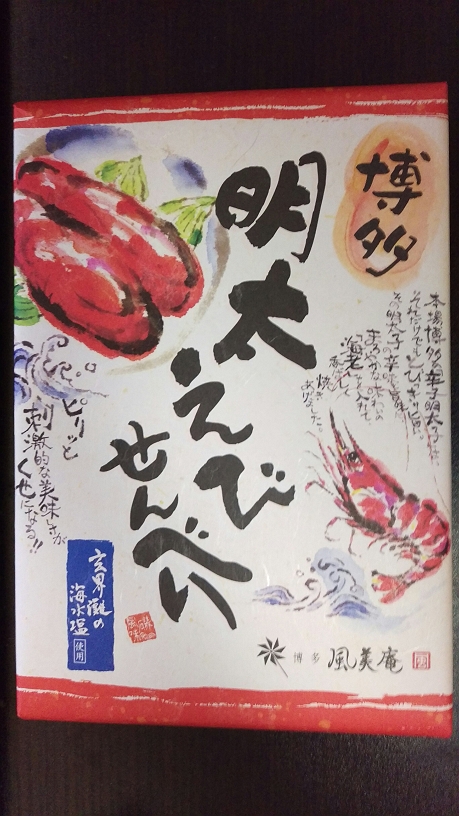 博多
明太えび
せんべい
本場博多の辛子明太子は、
それだけでもとびきり旨い。
その明太子の辛味と旨味、
まろやかな味わいの
「海老」を入れて
香ばしく
焼き
あげました。
ピリッと
刺激的な美味しさが
くせになる!!
玄界灘の
海水塩
使用
博多 風美庵